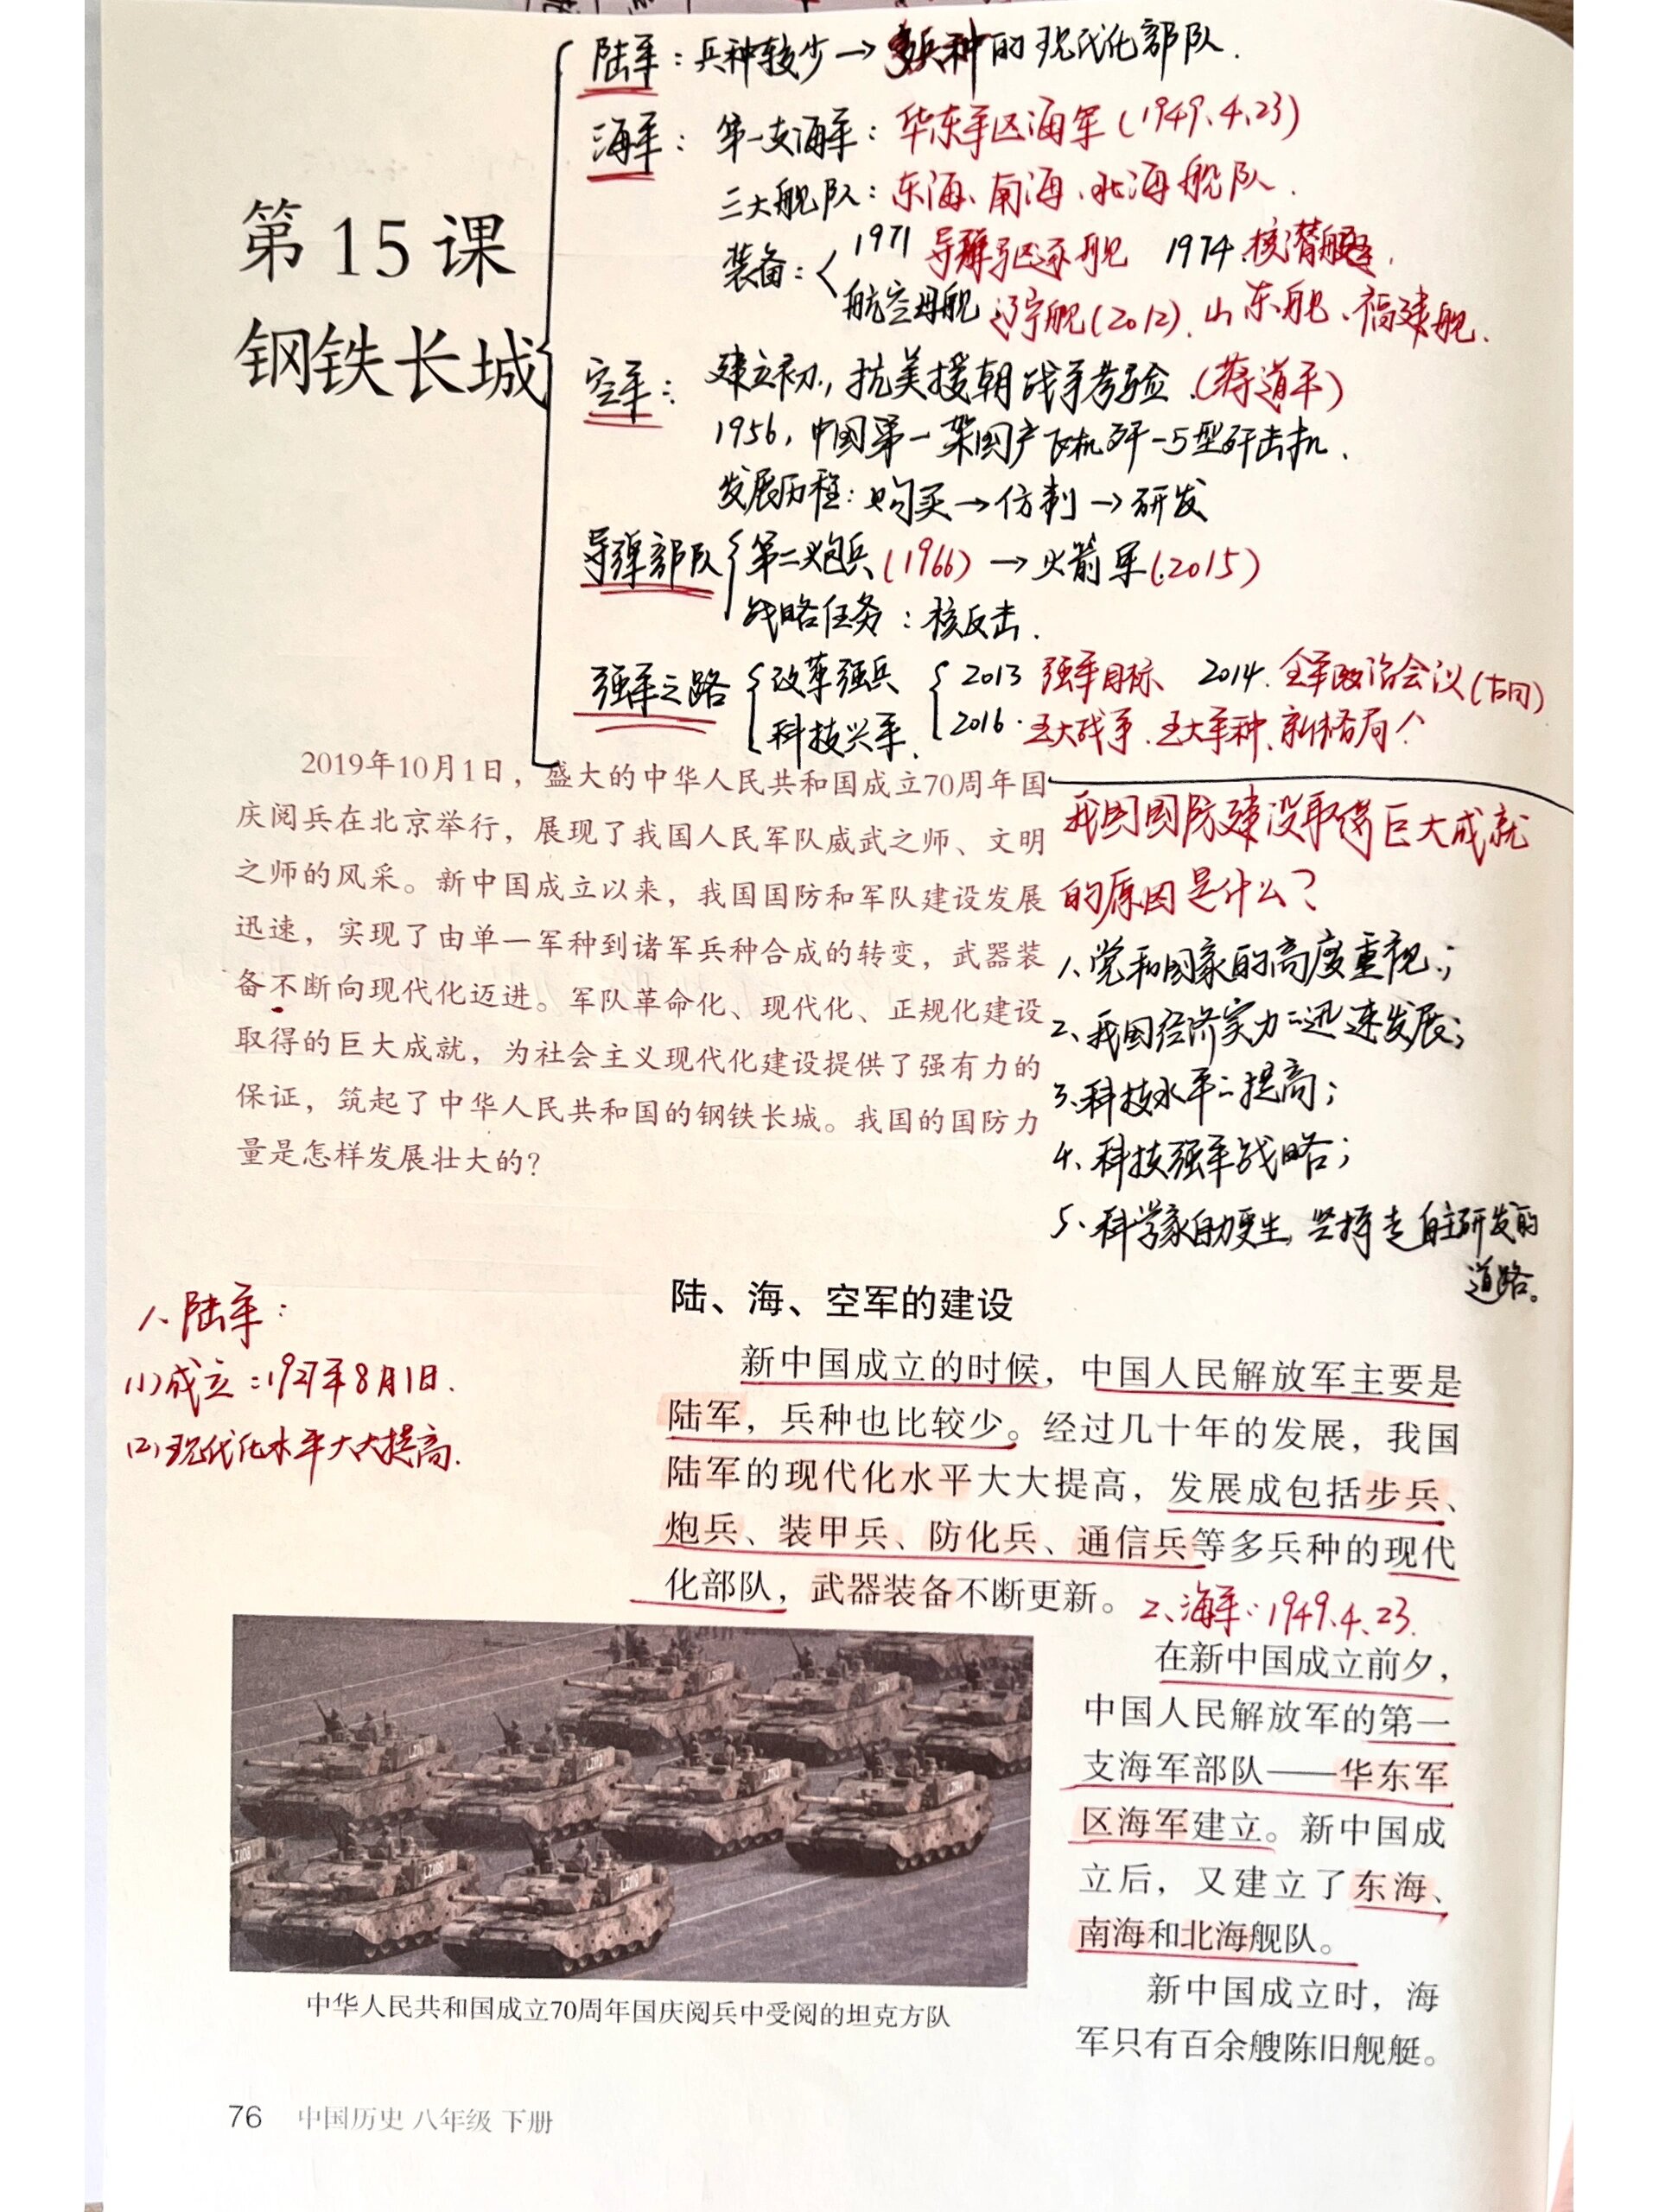 第15课
钢铁长城
陆军：兵种较少→多兵种的现代化部队.
海军：第一支海军：华东军区海军(1949.4.23)
三大舰队：东海、南海、北海舰队.
装备：1971 导弹驱逐舰 1974.核潜艇.
航空母舰 辽宁舰(2012).山东舰、福建舰.
空军：建立初,抗美援朝战争考验.(蒋道平)
1956,中国第一架国产飞机歼-5型歼击机.
发展历程：购买→仿制→研发
导弹部队 第二炮兵(1966)→火箭军(2015)
战略任务：核反击.
强军之路 改革强兵 2013 强军目标 2014.全军政治会议(古田)
科技兴军. 2016.五大战争.五大军种、新格局!
2019年10月1日，盛大的中华人民共和国成立70周年国
庆阅兵在北京举行，展现了我国人民军队威武之师、文明
之师的风采。新中国成立以来，我国国防和军队建设发展
迅速，实现了由单一军种到诸军兵种合成的转变，武器装
备不断向现代化迈进。军队革命化、现代化、正规化建设
取得的巨大成就，为社会主义现代化建设提供了强有力的
保证，筑起了中华人民共和国的钢铁长城。我国的国防力
量是怎样发展壮大的？
我国国防建设取得巨大成就
的原因是什么？
1、党和国家的高度重视；
2、我国经济实力的迅速发展；
3、科技水平的提高；
4、科技强军战略；
5、科学家自力更生,坚持走自主研发的
道路。
1、陆军：
(1)成立：1927年8月1日.
(2)现代化水平大大提高.
陆、海、空军的建设
新中国成立的时候，中国人民解放军主要是
陆军，兵种也比较少。经过几十年的发展，我国
陆军的现代化水平大大提高，发展成包括步兵、
炮兵、装甲兵、防化兵、通信兵等多兵种的现代
化部队，武器装备不断更新。
2、海军：1949.4.23.
在新中国成立前夕，
中国人民解放军的第一
支海军部队——华东军
区海军建立。新中国成
立后，又建立了东海、
南海和北海舰队。
新中国成立时，海
军只有百余艘陈旧舰艇。
中华人民共和国成立70周年国庆阅兵中受阅的坦克方队
76 中国历史 八年级 下册